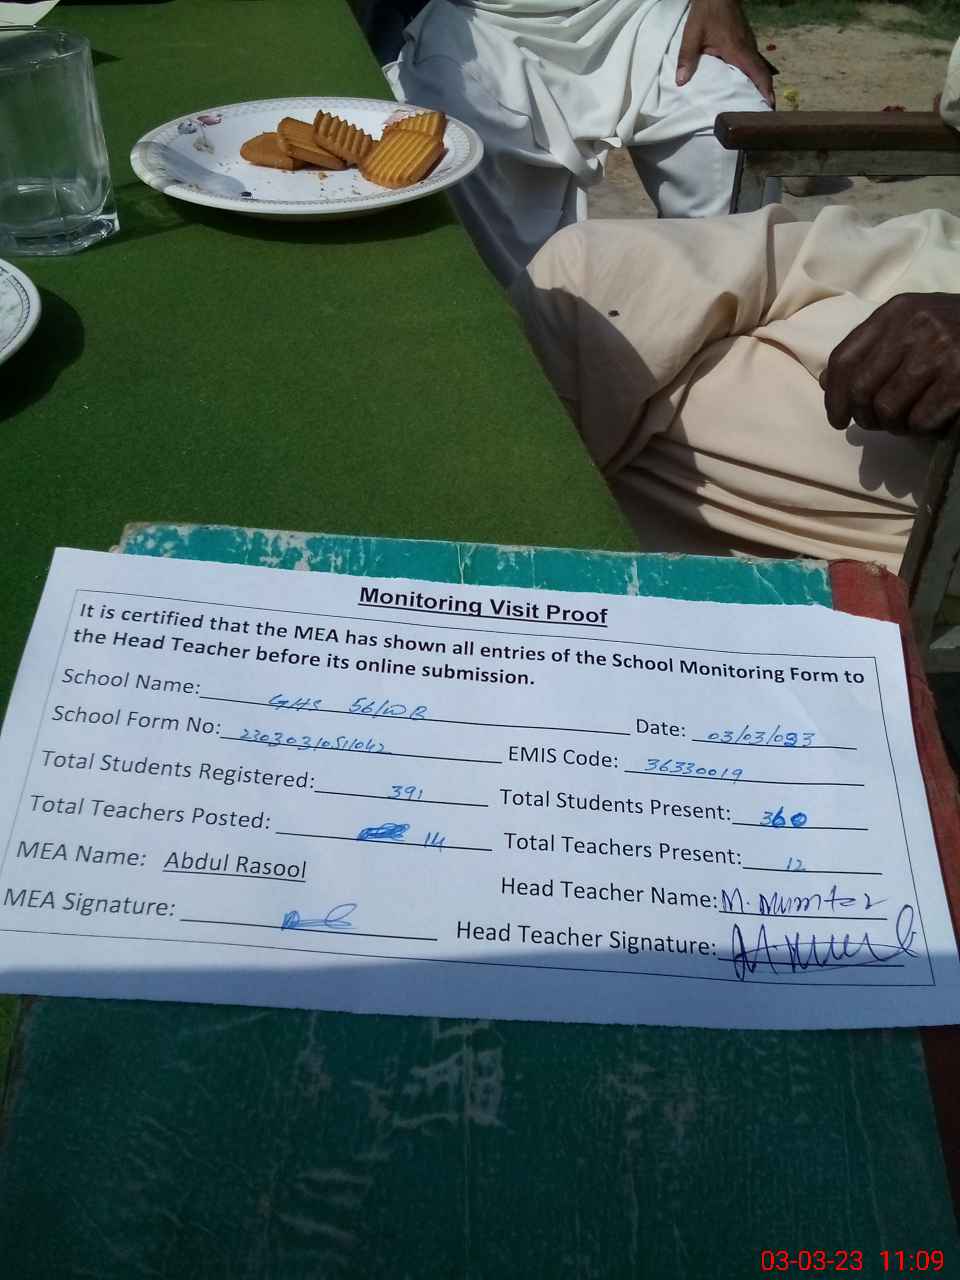 Monitoring Visit Proof
It is certified that the MEA has shown all entries of the School Monitoring Form to
the Head Teacher before its online submission.
School Name: GHS 56/WB Date: 03/03/023
School Form No: 230303/051/042 EMIS Code: 36330019
Total Students Registered: 391 Total Students Present: 360
Total Teachers Posted: 14 Total Teachers Present: 12
MEA Name: Abdul Rasool Head Teacher Name: M. Mumtaz
MEA Signature: Head Teacher Signature:
03-03-23 11:09